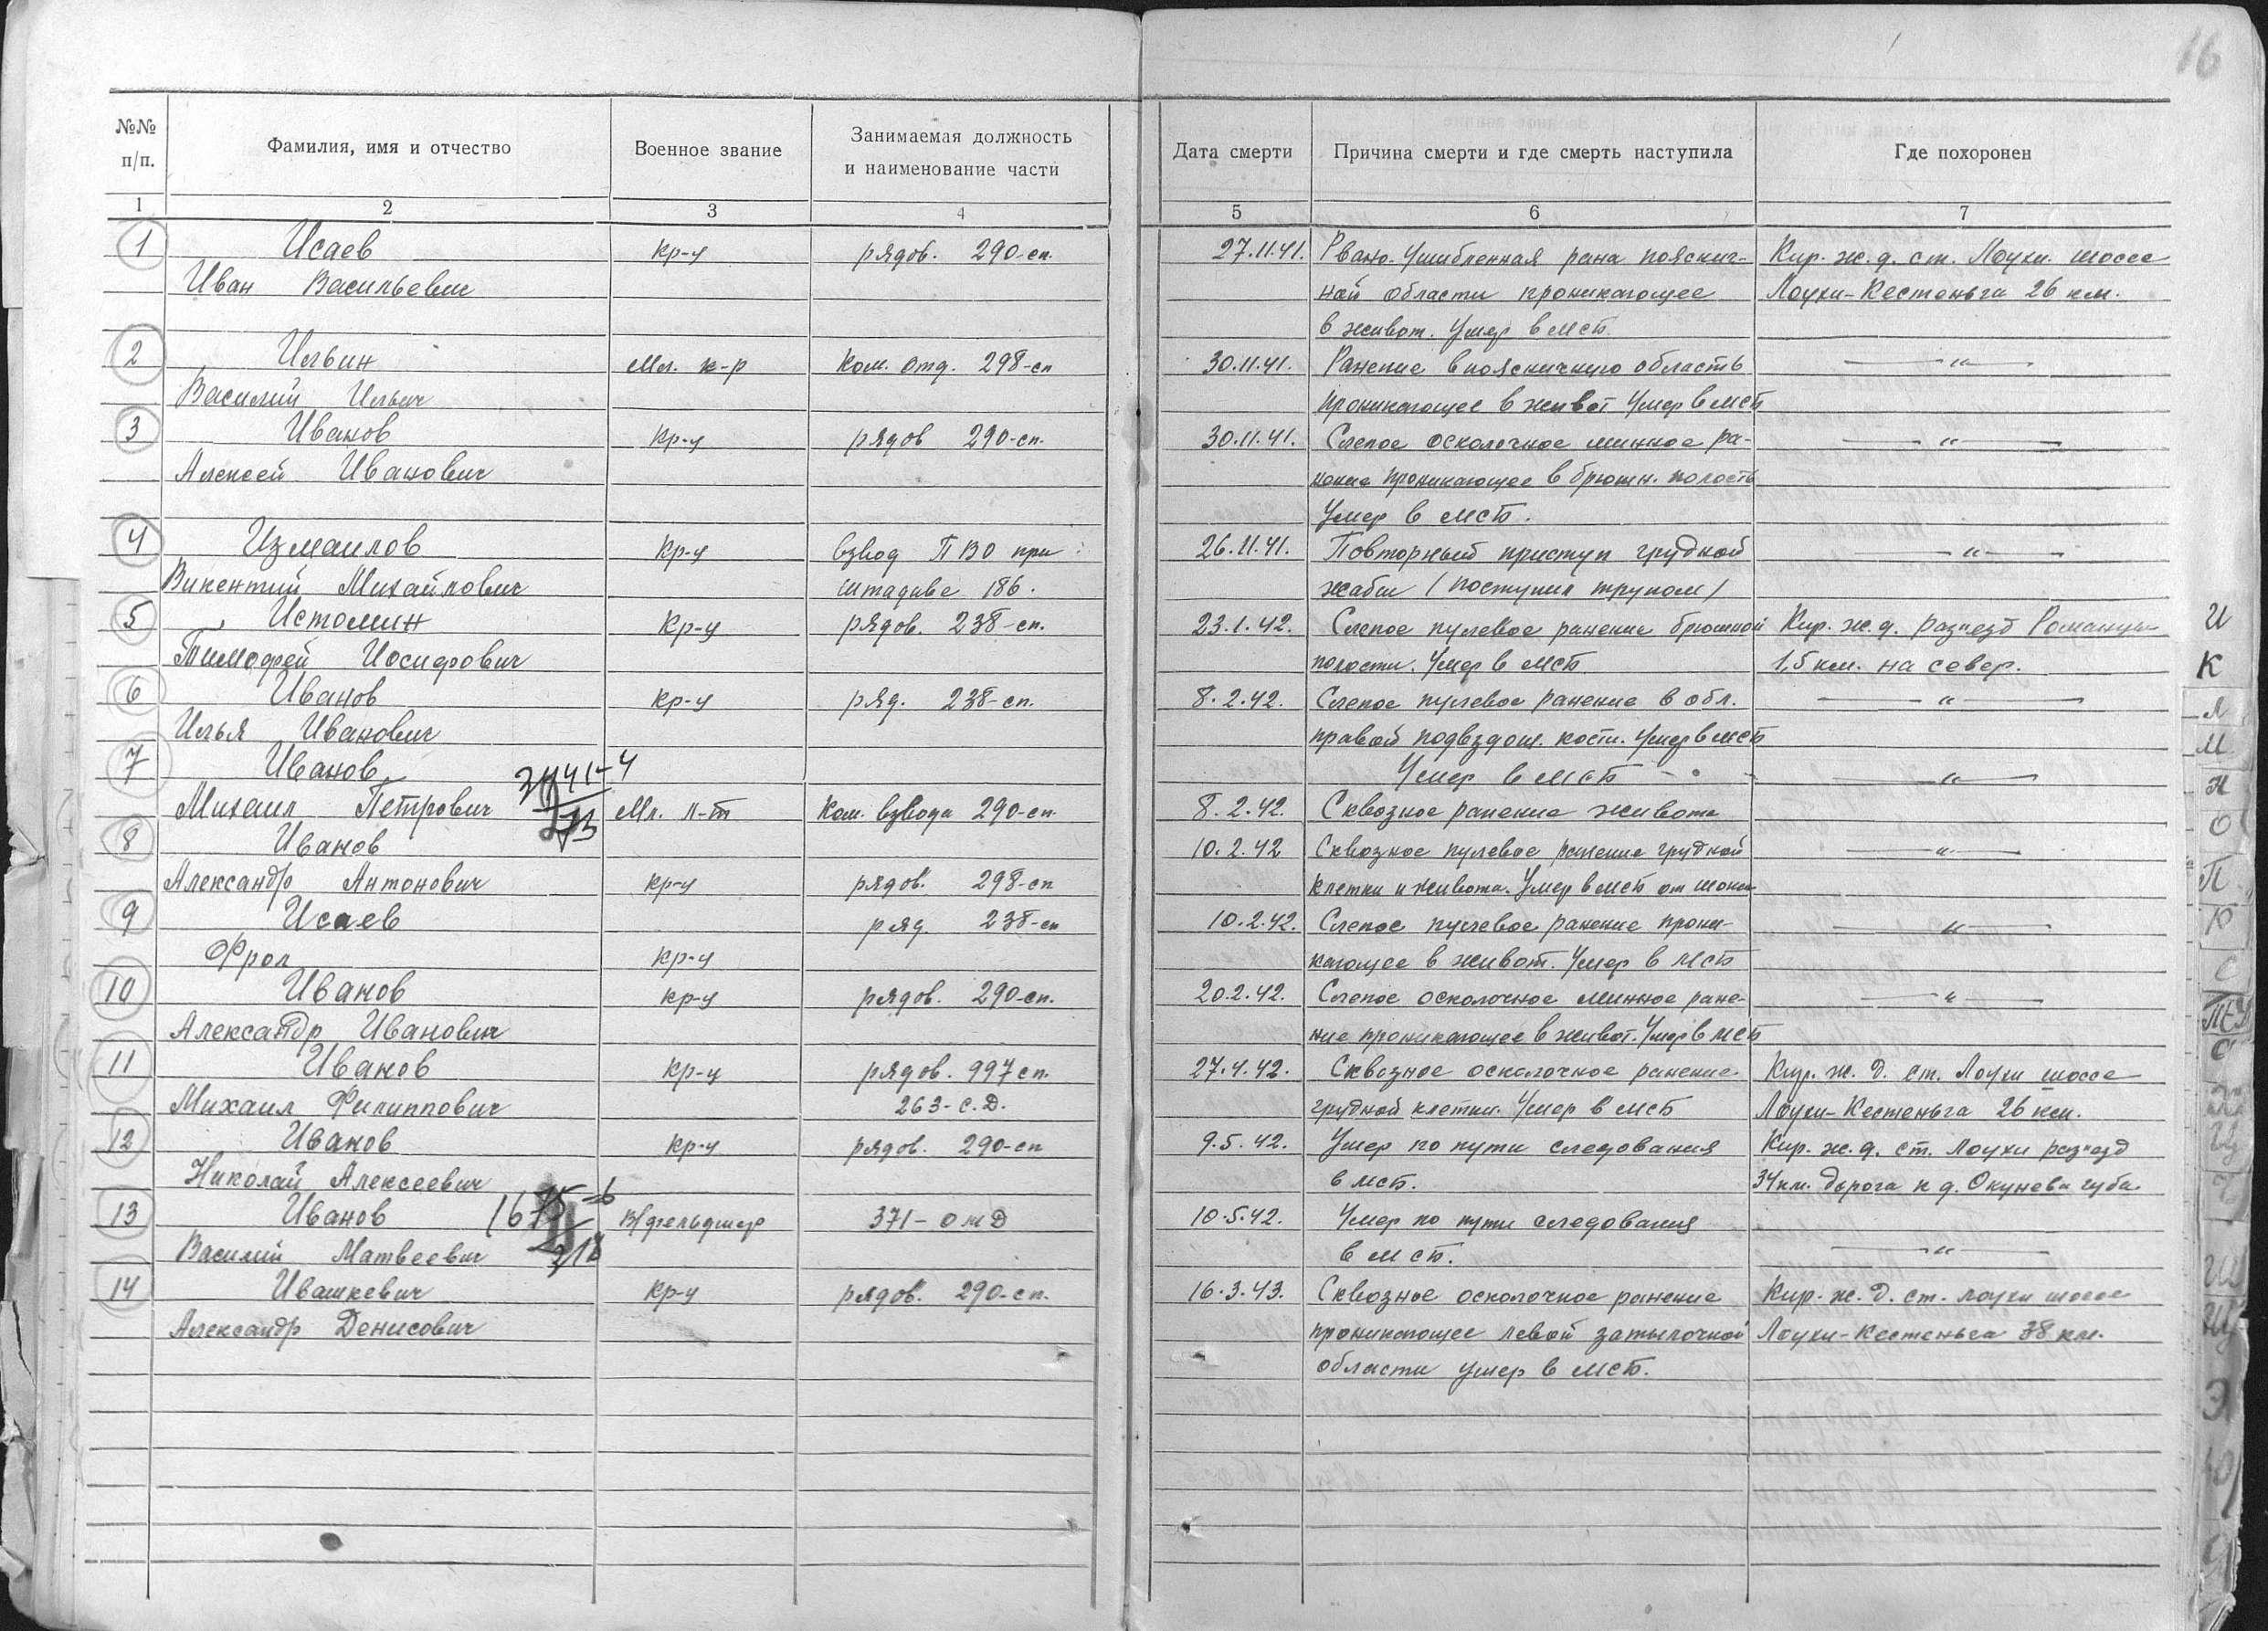 16
№№ п/п. Фамилия, имя и отчество Военное звание Занимаемая должность и наименование части Дата смерти Причина смерти и где смерть наступила Где похоронен
1 2 3 4 5 6 7
1 Исаев кр-ц рядов. 290-сп. 27.11.41. Рвано-Ушибленная рана пояснич- Кир. ж.д. ст. Лоухи. шоссе
Иван Васильевич ной области проникающее Лоухи-Кестеньга 26 км.
в живот. Умер в МСБ
2 Ильин Мл. к-р Ком. отд. 298-сп 30.11.41. Ранение в поясничную область —"—
Василий Ильич проникающее в живот Умер в МСБ
3 Иванов кр-ц рядов 290-сп. 30.11.41. Слепое осколочное минное ра- —"—
Алексей Иванович нение проникающее в брюшн. полость
Умер в МСБ.
4 Измаилов кр-ц взвод ПВО при 26.11.41. Повторный приступ грудной —"—
Викентий Михайлович штадиве 186. жабы / поступил трупом /
5 Истомин кр-ц рядов. 238-сп. 23.1.42. Слепое пулевое ранение брюшной Кир. ж.д. разъезд Романцы
Тимофей Иосифович полости. Умер в МСБ 1,5 км. на север.
6 Иванов кр-ц ряд. 238-сп. 8.2.42. Слепое пулевое ранение в обл. —"—
Илья Иванович правой подвздош. кости. Умер в МСБ
7 Иванов Умер в МСБ —"—
Михаил Петрович Мл. л-т Ком. взвода 290-сп. 8.2.42. Сквозное ранение живота
8 Иванов 10.2.42 Сквозное пулевое ранение грудной —"—
Александр Антонович кр-ц рядов. 298-сп клетки и живота. Умер в МСБ от шока
9 Исаев ряд. 238-сп 10.2.42. Слепое пулевое ранение прони- —"—
Фрол кр-ц кающее в живот. Умер в МСБ
10 Иванов кр-ц рядов. 290-сп. 20.2.42. Слепое осколочное минное ране- —"—
Александр Иванович ние проникающее в живот. Умер в МСБ
11 Иванов кр-ц рядов. 997 сп. 27.4.42. Сквозное осколочное ранение Кир. ж.д. ст. Лоухи шоссе
Михаил Филиппович 263-с.д. грудной клетки. Умер в МСБ Лоухи-Кестеньга 26 км.
12 Иванов кр-ц рядов. 290-сп 9.5.42. Умер по пути следования Кир. ж.д. ст. Лоухи разъезд
Николай Алексеевич в МСБ. 34 км. дорога к д. Окунева губа
13 Иванов В/фельдшер 371-ОМД 10.5.42. Умер по пути следования
Василий Матвеевич в МСБ. —"—
14 Ивашкевич кр-ц рядов. 290-сп. 16.3.43. Сквозное осколочное ранение Кир. ж.д. ст. Лоухи шоссе
Александр Денисович проникающее левой затылочной Лоухи-Кестеньга 38 км.
области умер в МСБ.
И
К
Л
М
Н
О
П
Р
С
Э